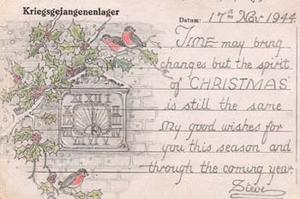 Kriegsgefangenenlager
Datum: 17th Nov 1944
TIME may bring
changes but the spirit
of CHRISTMAS
is still the same
My good wishes for
you this season and
through the coming year
Steve